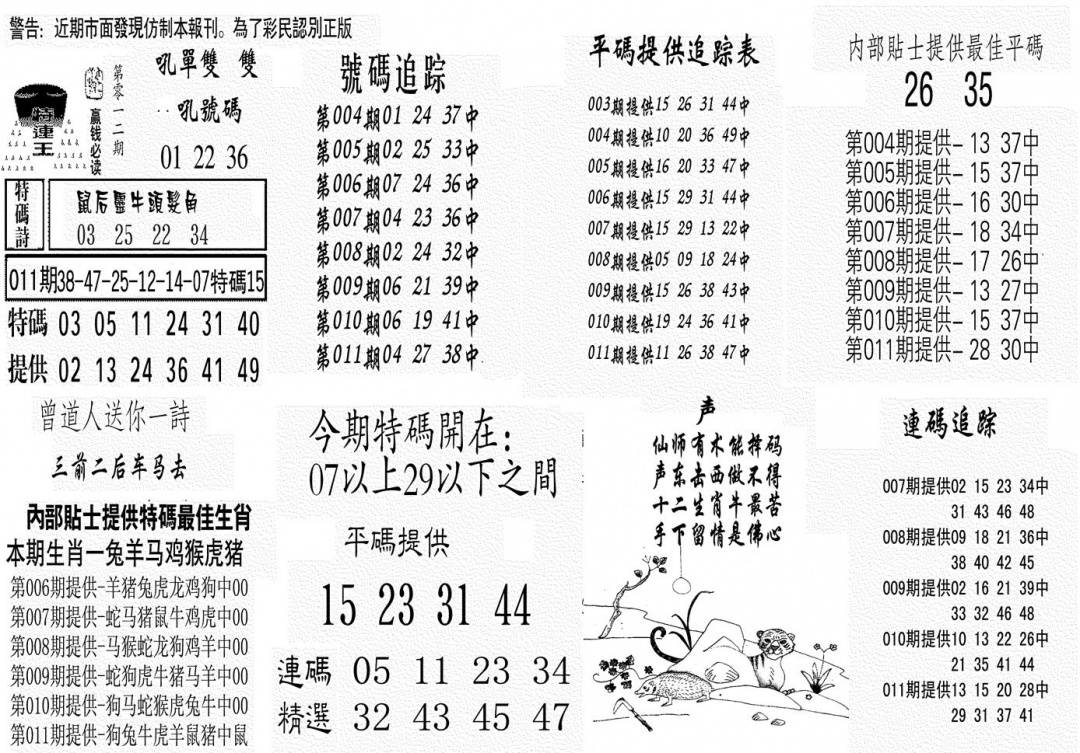 警告: 近期市面發現仿制本報刊。為了彩民認別正版
特連王
贏钱必读
第零一二期
吼單雙 雙
吼號碼
01 22 36
特碼詩
鼠后靈牛頭髮角
03 25 22 34
011期38-47-25-12-14-07特碼15
特碼 03 05 11 24 31 40
提供 02 13 24 36 41 49
號碼追踪
第004期01 24 37中
第005期02 25 33中
第006期07 24 36中
第007期04 23 36中
第008期02 24 32中
第009期06 21 39中
第010期06 19 41中
第011期04 27 38中
平碼提供追踪表
003期提供15 26 31 44中
004期提供10 20 36 49中
005期提供16 20 33 47中
006期提供15 29 31 44中
007期提供15 29 13 22中
008期提供05 09 18 24中
009期提供15 26 38 43中
010期提供19 24 36 41中
011期提供11 26 38 47中
内部貼士提供最佳平碼
26 35
第004期提供- 13 37中
第005期提供- 15 37中
第006期提供- 16 30中
第007期提供- 18 34中
第008期提供- 17 26中
第009期提供- 13 27中
第010期提供- 15 37中
第011期提供- 28 30中
曾道人送你一詩
三前二后车马去
內部貼士提供特碼最佳生肖
本期生肖一兔羊马鸡猴虎猪
第006期提供-羊猪兔虎龙鸡狗中00
第007期提供-蛇马猪鼠牛鸡虎中00
第008期提供-马猴蛇龙狗鸡羊中00
第009期提供-蛇狗虎牛猪马羊中00
第010期提供-狗马蛇猴虎兔牛中00
第011期提供-狗兔牛虎羊鼠猪中鼠
今期特碼開在:
07以上29以下之間
平碼提供
15 23 31 44
連碼 05 11 23 34
精選 32 43 45 47
声
仙师有术能择码
声东击西做不得
十二生肖牛最苦
手下留情是佛心
連碼追踪
007期提供02 15 23 34中
31 43 46 48
008期提供09 18 21 36中
38 40 42 45
009期提供02 16 21 39中
33 32 46 48
010期提供10 13 22 26中
21 35 41 44
011期提供13 15 20 28中
29 31 37 41